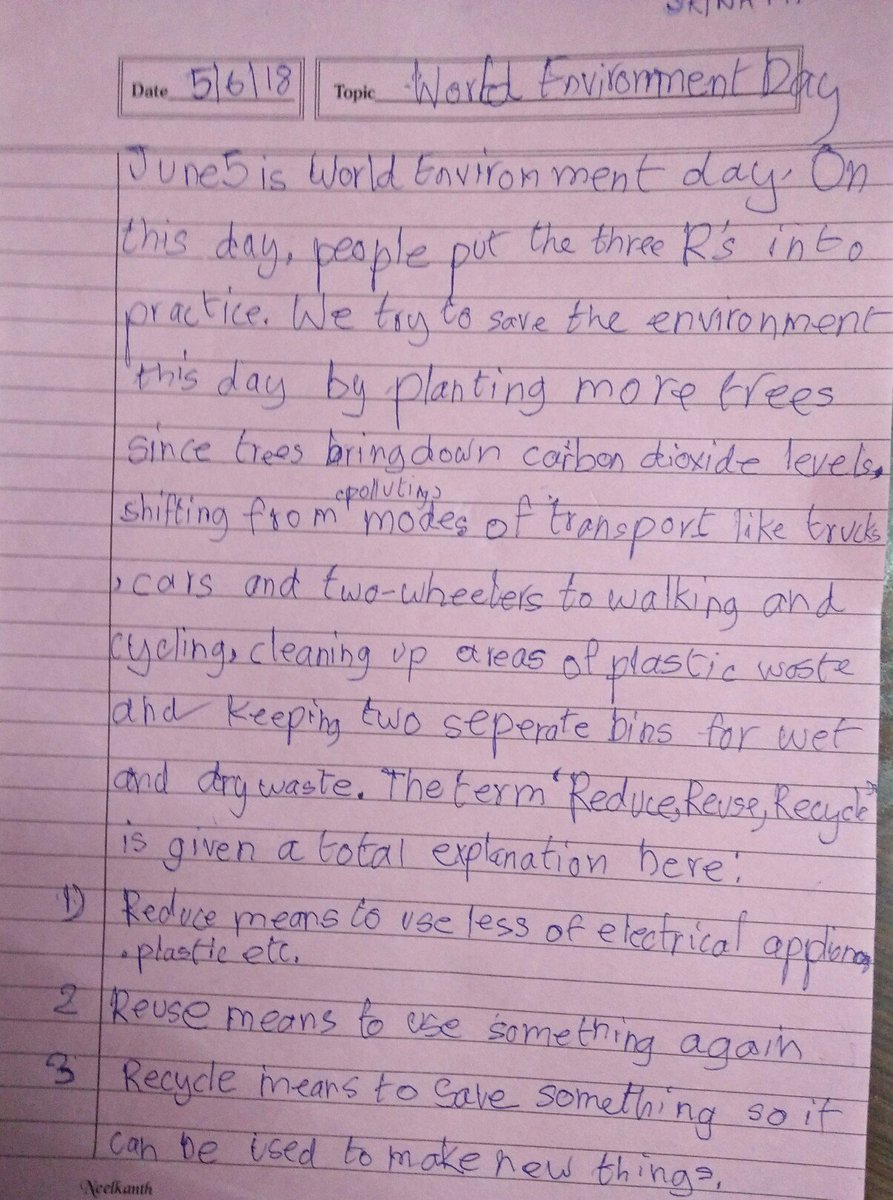 Date 5/6/18 Topic World Environment Day
June 5 is World Environment day. On
this day, people put the three R's into
practice. We try to save the environment
this day by planting more trees
since trees bring down carbon dioxide levels,
polluting
shifting from modes of transport like trucks
, cars and two-wheelers to walking and
cycling, cleaning up areas of plastic waste
and keeping two seperate bins for wet
and dry waste. The term "Reduce, Reuse, Recycle"
is given a total explanation here:
1) Reduce means to use less of electrical
, plastic etc.
2 Reuse means to use something again
3 Recycle means to save something so it
can be used to make new things.
Neelkanth